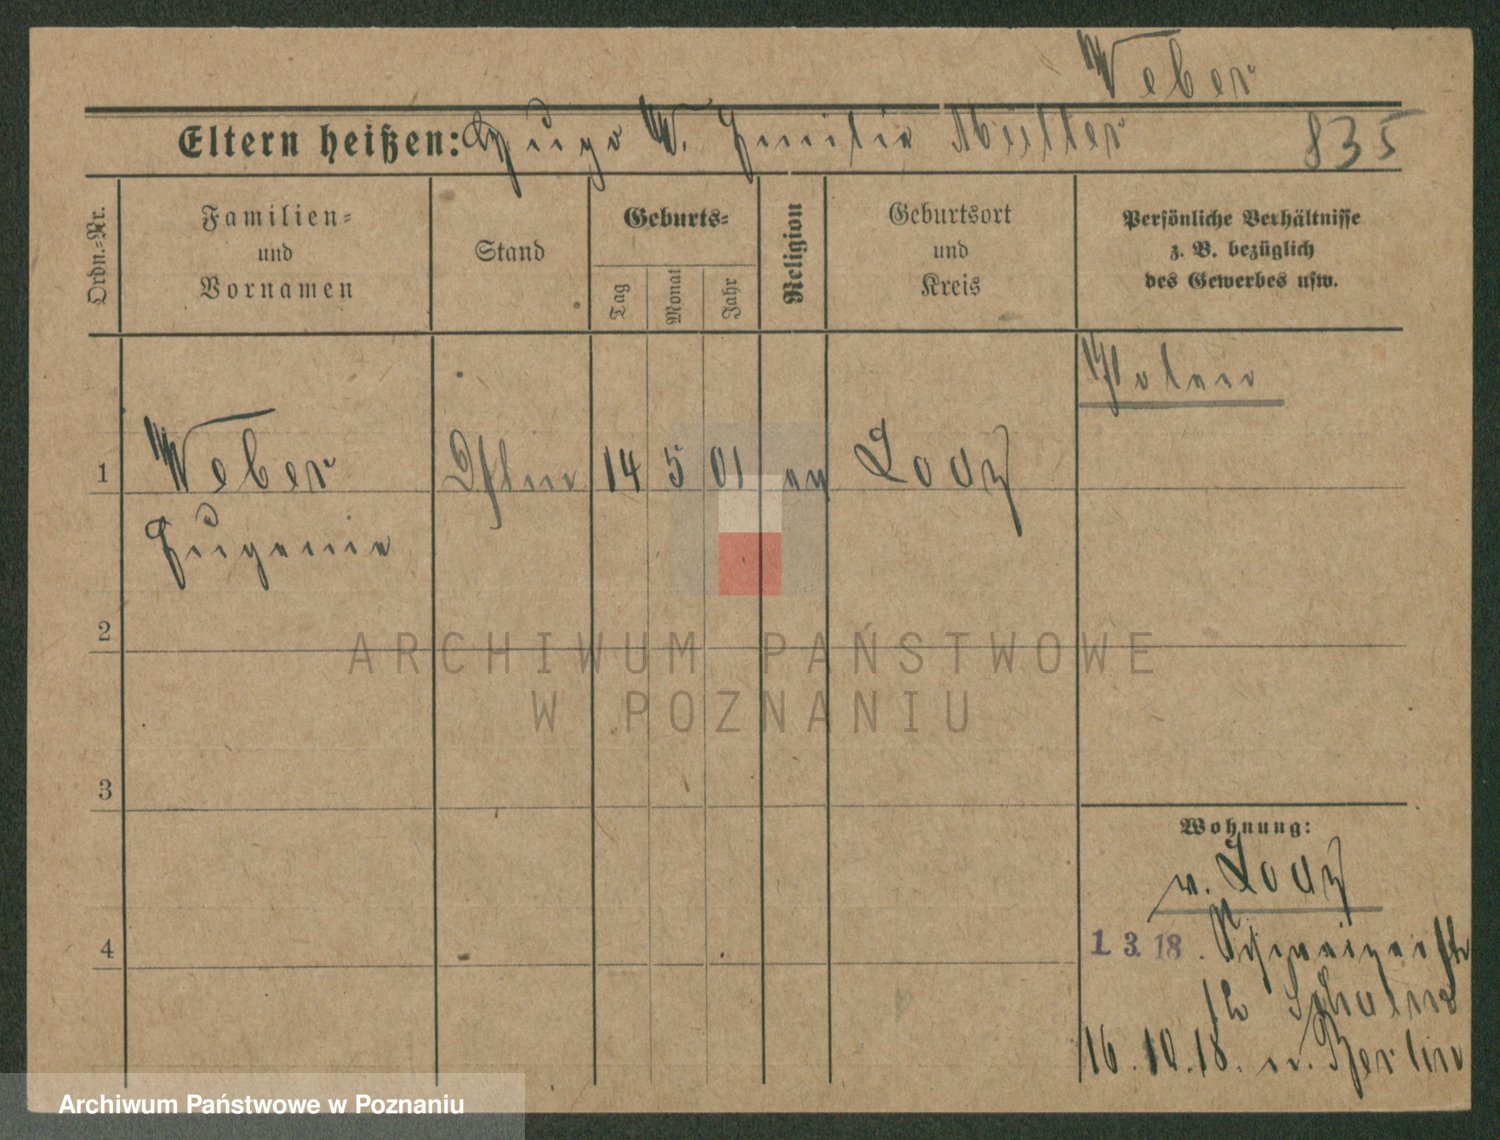 Weber
Eltern heißen: Hugo W. Emilie Müller 835
Ordn.-Nr.
Familien-
und
Vornamen
Stand
Geburts-
Tag
Monat
Jahr
Religion
Geburtsort
und
Kreis
Persönliche Verhältnisse
z. B. bezüglich
des Gewerbes usw.
Polen
1 Weber 14 5 01 ev Lodz
Eugenie
2
3
4
Wohnung:
v. Lodz
1. 3. 18.
12
16. 10. 18. n. Berlin
ARCHIWUM PAŃSTWOWE
W POZNANIU
Archiwum Państwowe w Poznaniu